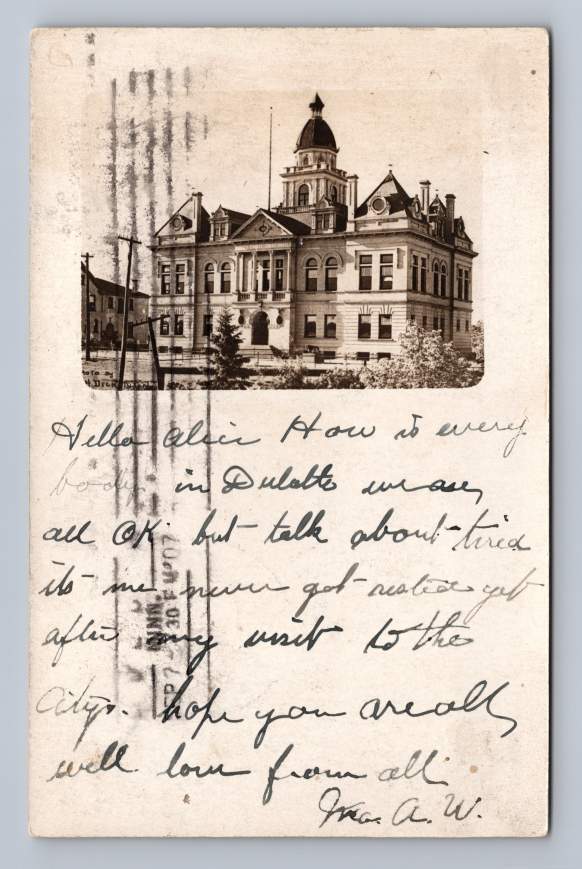 Hello Alice How is every
body in Dulutte we are
all OK. but talk about tired
its me never got rested yet
after my visit to the
citys. hope you are all
well. love from all.
Mrs. A. W.
MINN
30 P M
07